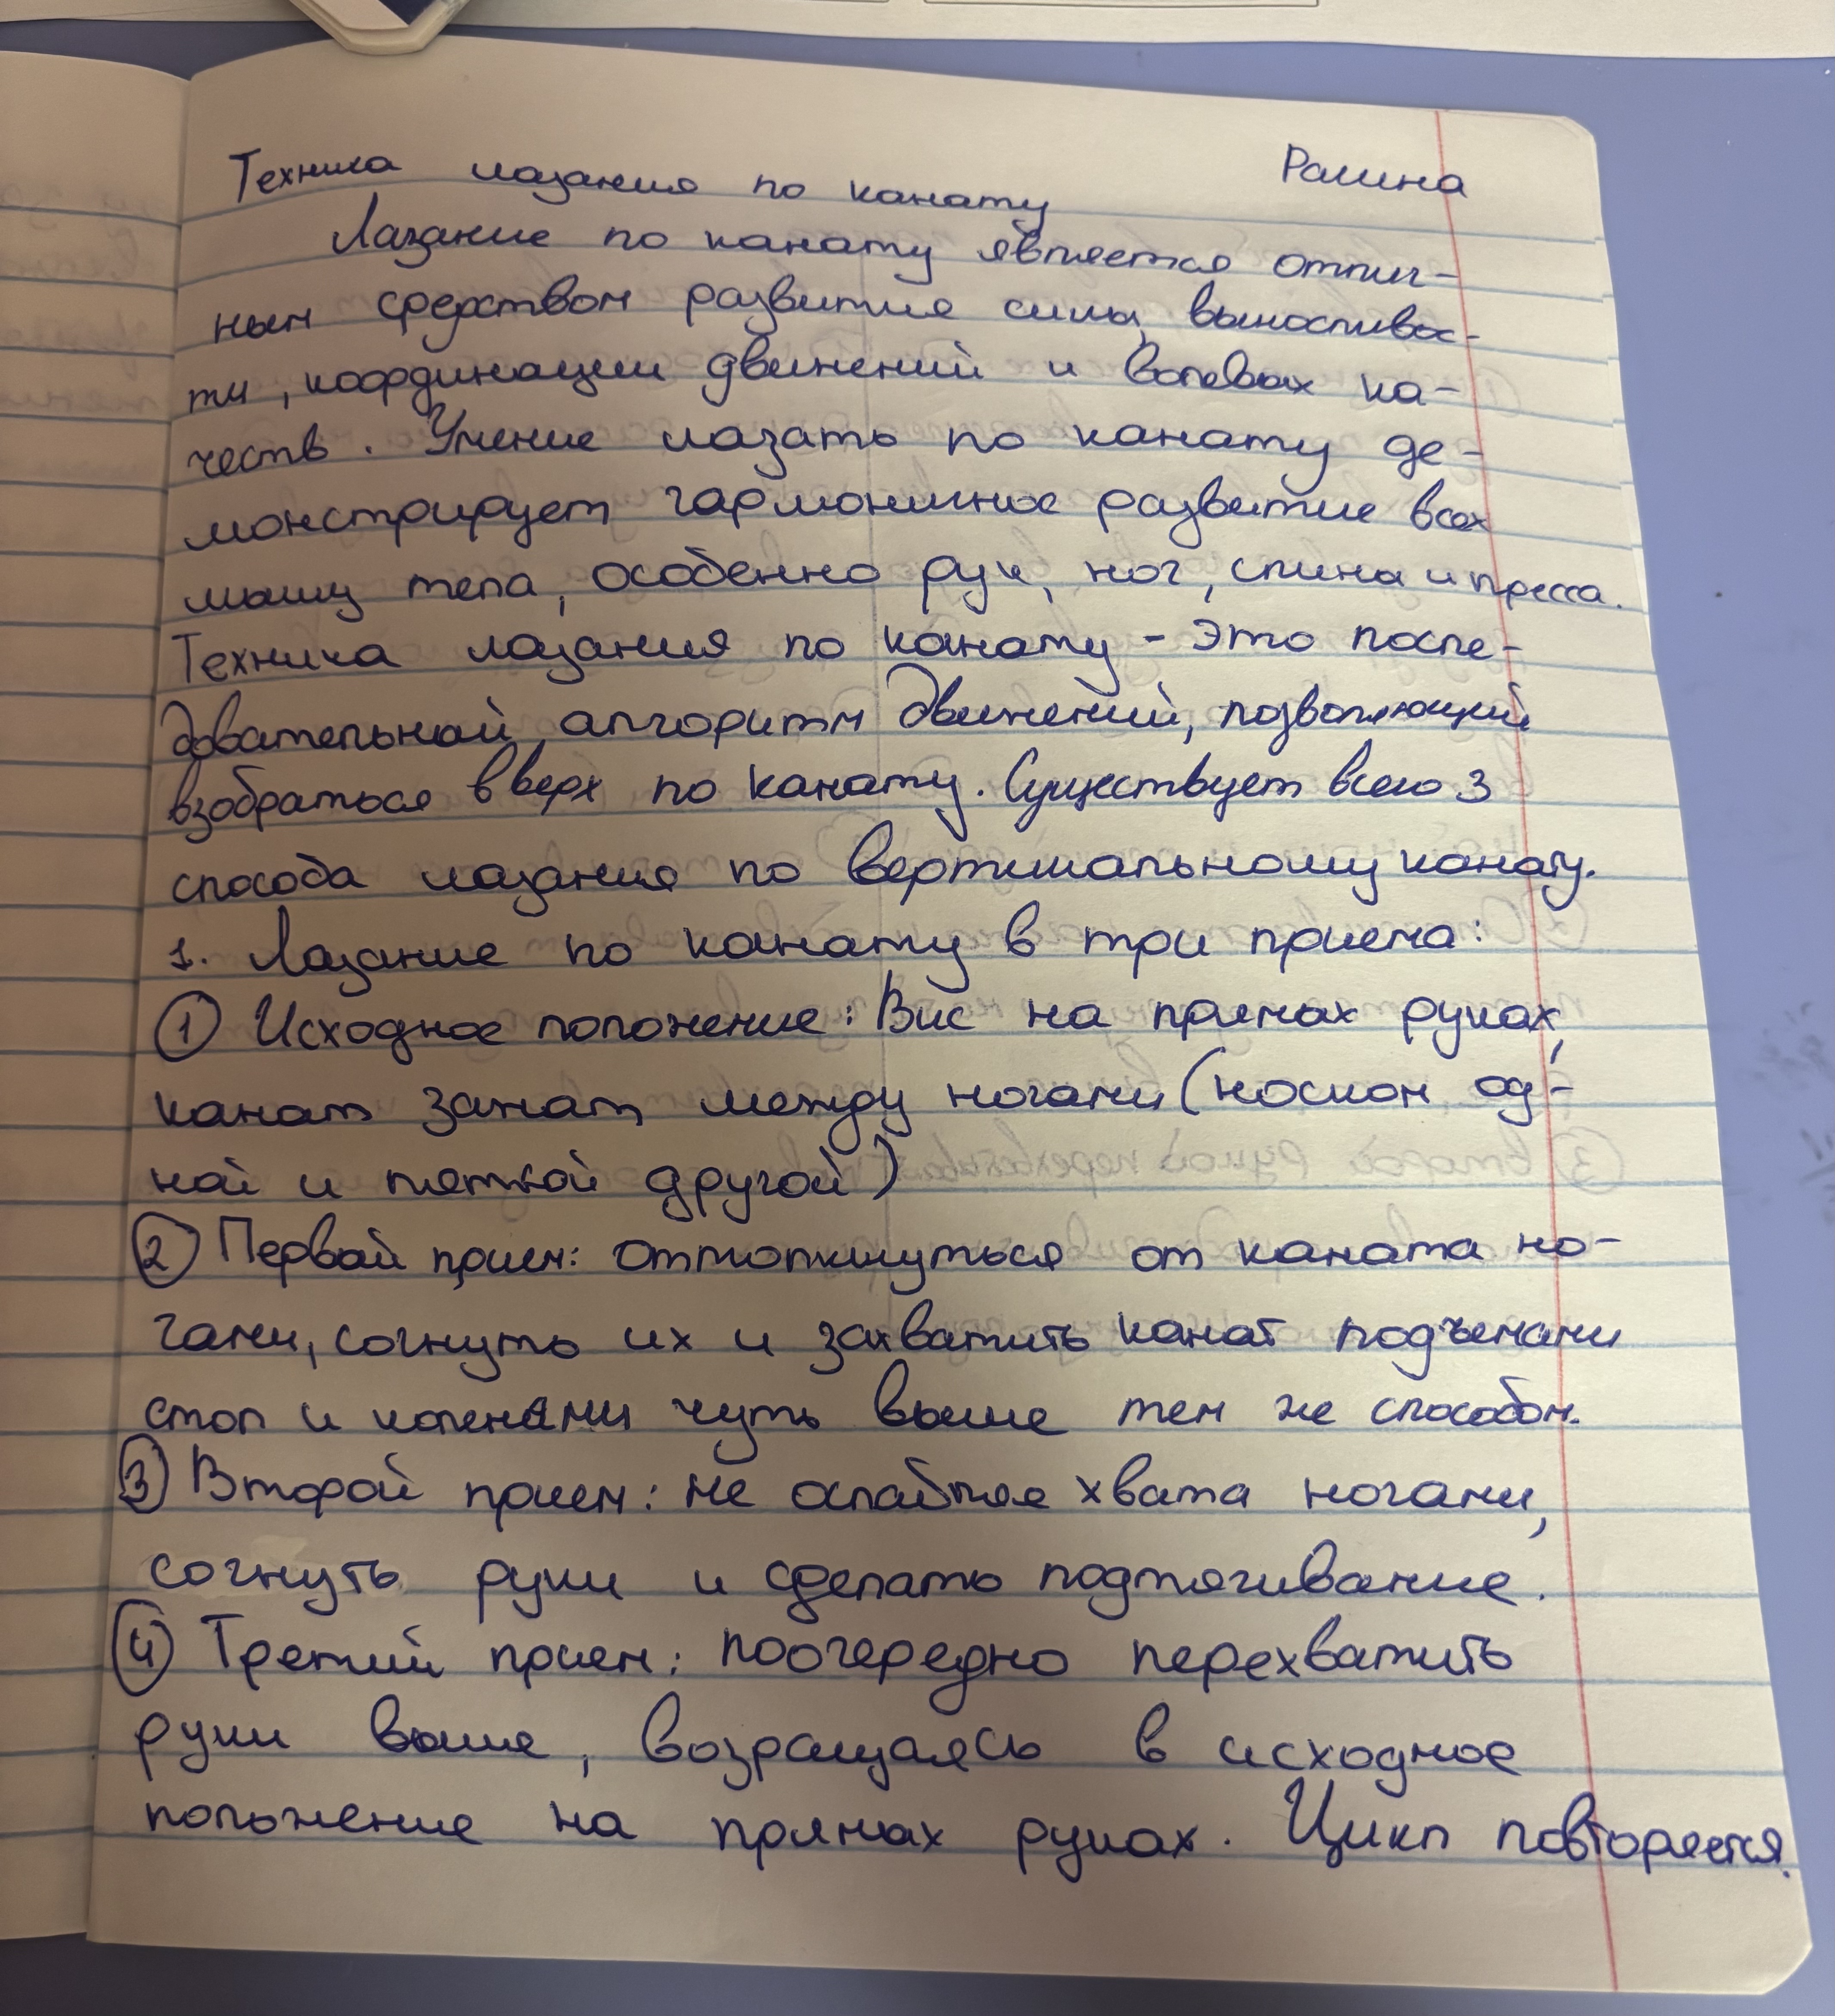 Техника лазания по канату
Рамина
Лазание по канату является отлич-
ным средством развития силы, выносливос-
ти, координации движений и волевых ка-
честв. Умение лазать по канату де-
монстрирует гармоничное развитие всех
мышц тела, особенно рук, ног, спины и пресса.
Техника лазания по канату - это после-
довательный алгоритм движений, позволяющий
взобраться вверх по канату. Существует всего 3
способа лазания по вертикальному канату.
1. Лазание по канату в три приема:
① Исходное положение: Вис на прямых руках,
канат зажат между ногами (носком од-
ной и пяткой другой)
② Первый прием: оттолкнуться от каната но-
гами, согнуть их и захватить канат подъемами
стоп и коленами чуть выше тем же способом.
③ Второй прием: не ослабляя хвата ногами,
согнуть руки и сделать подтягивание.
④ Третий прием: поочередно перехватить
руки выше, возращаясь в исходное
положение на прямых руках. Цикл повторяется.